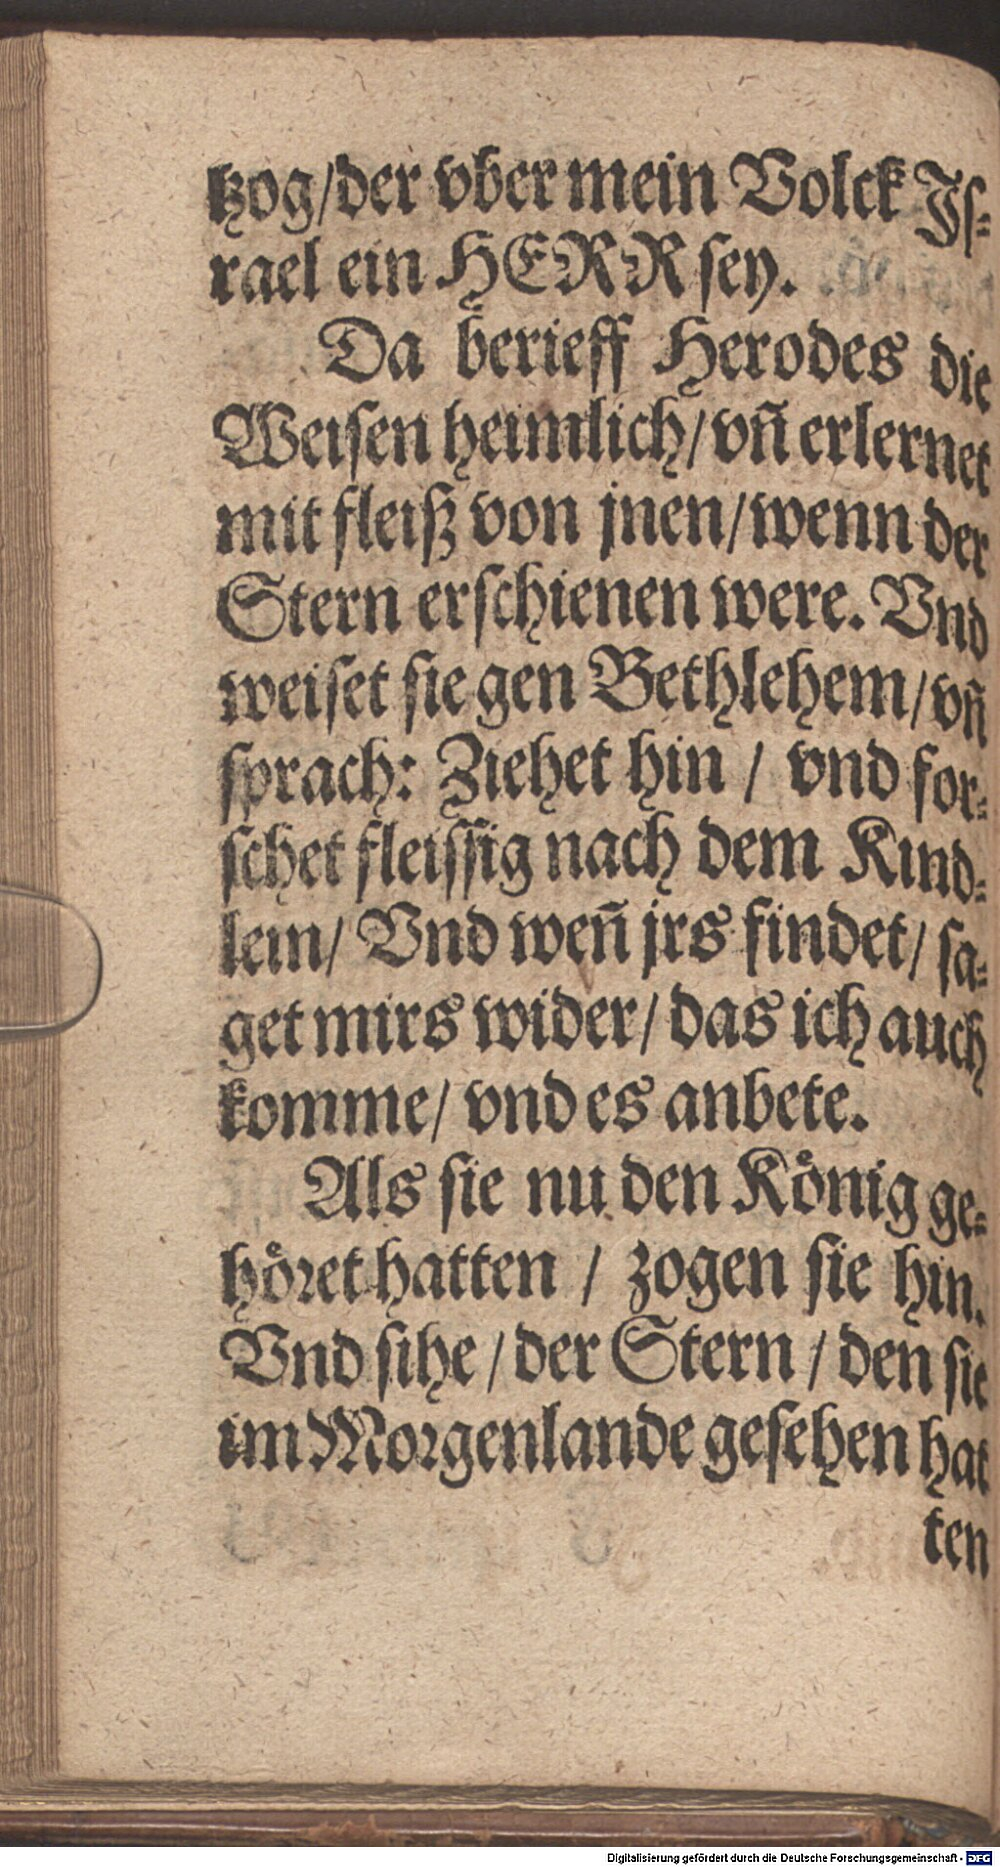 tzog/der vber mein Volck Jſ⸗
rael ein HERR ſey.
Da berieff Herodes die
Weiſen heimlich/ vñ erlernet
mit fleiß von jnen/ wenn der
Stern erſchienen were. Vnd
weiſet ſie gen Bethlehem/ vñ
ſprach: Ziehet hin / vnd for⸗
ſchet fleiſſig nach dem Kind⸗
lein/ Vnd weñ jrs findet/ ſa⸗
get mirs wider/ das ich auch
komme/ vnd es anbete.
Als ſie nu den Koͤnig ge⸗
hoͤret hatten / zogen ſie hin.
Vnd ſihe / der Stern / den ſie
im Morgenlande geſehen hat
ten
Digitalisierung gefördert durch die Deutsche Forschungsgemeinschaft - DFG